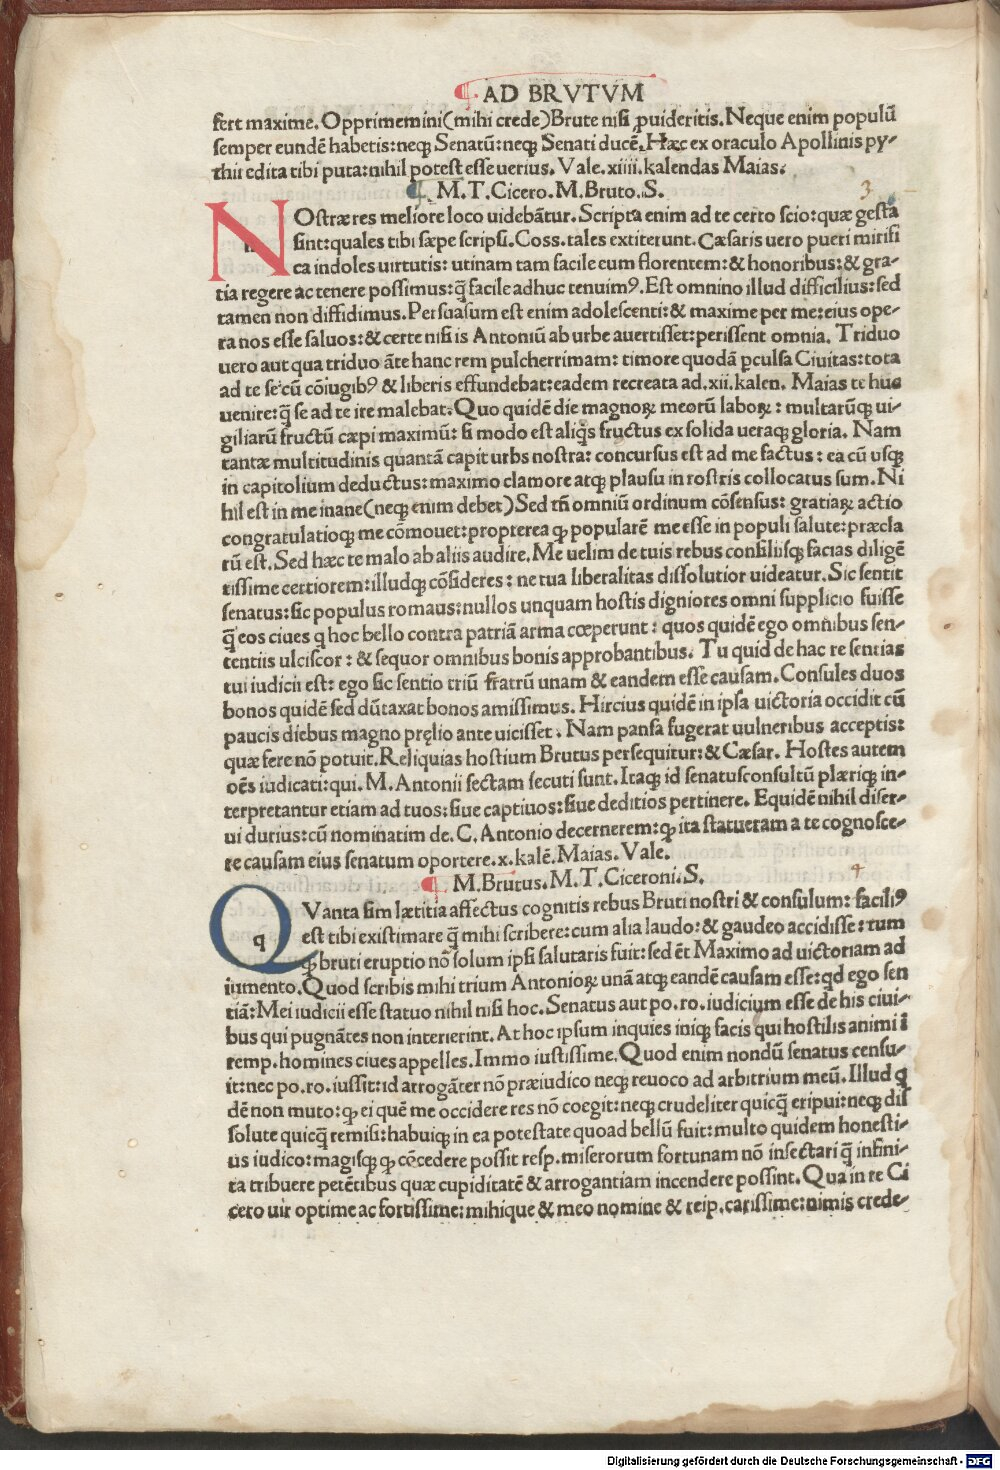 AD BRVTVM
fert maxime. Opprimemini (mihi crede) Brute nisi ꝓuideritis. Neque enim populū
semper eundē habetis: neqꝫ Senatū: neqꝫ Senati ducē. Hæc ex oraculo Apollinis py-
thii edita tibi puta: nihil potest esse uerius. Vale. xiiii. kalendas Maias.
M. T. Cicero. M. Bruto. S.
3
NOstræ res meliore loco uidebātur. Scripta enim ad te certo scio: quæ gesta
sint: quales tibi sæpe scripsi. Coss. tales extiterunt. Cæsaris uero pueri mirifi
ca indoles uirtutis: utinam tam facile eum florentem: & honoribus: & gra-
tia regere ac tenere possimus: q̄ facile adhuc tenuimꝰ. Est omnino illud difficilius: sed
tamen non diffidimus. Persuasum est enim adolescenti: & maxime per me: eius ope-
ra nos esse saluos: & certe nisi is Antoniū ab urbe auertisset: perissent omnia. Triduo
uero aut qua triduo āte hanc rem pulcherrimam: timore quodā ꝑculsa Ciuitas: tota
ad te se cū cōiugibꝰ & liberis effundebat: eadem recreata ad. xii. kalen. Maias te huc
uenire: q̄ se ad te ire malebat. Quo quidē die magnoꝝ meorū laboꝝ: multarūqꝫ ui-
giliarū fructū cæpi maximū: si modo est aliq̄s fructus ex solida ueraqꝫ gloria. Nam
tantæ multitudinis quantā capit urbs nostra: concursus est ad me factus: ea cū usqꝫ
in capitolium deductus: maximo clamore atqꝫ plausu in rostris collocatus sum. Ni
hil est in me inane (neqꝫ enim debet) Sed tn̄ omniū ordinum cōsensus: gratiaꝝ actio
congratulatioqꝫ me cōmouet: propterea qꝫ popularē me esse in populi salute: præcla
rū est. Sed hæc te malo ab aliis audire. Me uelim de tuis rebus consiliisqꝫ facias diligē
tissime certiorem: illudqꝫ cōsideres: ne tua liberalitas dissolutior uideatur. Sic sentit
senatus: sic populus romaus: nullos unquam hostis digniores omni supplicio fuisse
q̄ eos ciues q hoc bello contra patriā arma cœperunt: quos quidē ego omnibus sen-
tentiis ulciscor: & sequor omnibus bonis approbantibus. Tu quid de hac re sentias
tui iudicii est: ego sic sentio triū fratrū unam & eandem esse causam. Consules duos
bonos quidē sed dūtaxat bonos amissimus. Hircius quidē in ipsa uictoria occidit cū
paucis diebus magno pręlio ante uicisset. Nam pansa fugerat uulneribus acceptis:
quæ fere nō potuit. Reliquias hostium Brutus persequitur: & Cæsar. Hostes autem
oēs iudicati: qui. M. Antonii sectam secuti sunt. Itaqꝫ id senatusconsultū plæriqꝫ in-
terpretantur etiam ad tuos: siue captiuos: siue deditios pertinere. Equidē nihil diser-
ui durius: cū nominatim de. C. Antonio decernerem: qꝫ ita statueram a te cognosce-
re causam eius senatum oportere. x. kalē. Maias. Vale.
M. Brutus. M. T. Ciceroni. S.
4
QVanta sim lætitia affectus cognitis rebus Bruti nostri & consulum: faciliꝰ
est tibi existimare q̄ mihi scribere: cum alia laudo: & gaudeo accidisse: tum
qꝫ bruti eruptio nō solum ipsi salutaris fuit: sed ēt Maximo ad uictoriam ad
iumento. Quod scribis mihi trium Antonioꝝ unā atqꝫ eandē causam esse: qd ego sen
tiā: Mei iudicii esse statuo nihil nisi hoc. Senatus aut po. ro. iudicium esse de his ciui-
bus qui pugnātes non interierint. At hoc ipsum inquies iniqꝫ facis qui hostilis animi ī
remp. homines ciues appelles. Immo iustissime. Quod enim nondū senatus censu-
it: nec po. ro. iussit: id arrogāter nō præiudico neqꝫ reuoco ad arbitrium meū. Illud q
dē non muto: qꝫ ei quē me occidere res nō coegit: neqꝫ crudeliter quicq̄ eripui: neqꝫ dis
solute quicq̄ remisi: habuiqꝫ in ea potestate quoad bellū fuit: multo quidem honesti-
us iudico: magisqꝫ qꝫ cēcedere possit resp. miserorum fortunam nō insectari q̄ infini-
ta tribuere petētibus quæ cupiditatē & arrogantiam incendere possint. Qua in re Ci
cero uir optime ac fortissime: mihique & meo nomine & reip. carissime: nimis crede-
Digitalisierung gefördert durch die Deutsche Forschungsgemeinschaft - DFG